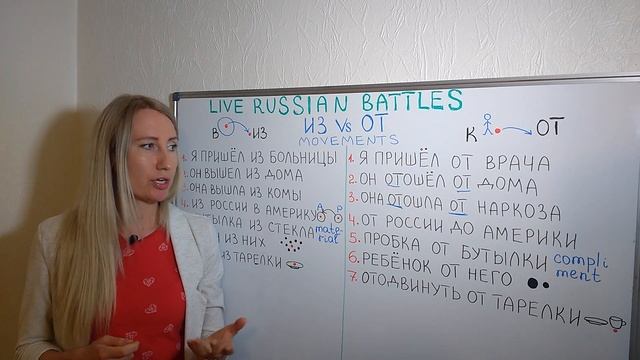 LIVE RUSSIAN BATTLES
В ИЗ ИЗ Vs ОТ К ОТ
MOVEMENTS
1. Я ПРИШЁЛ ИЗ БОЛЬНИЦЫ
ОН ВЫШЕЛ ИЗ ДОМА
ОНА ВЫШЛА ИЗ КОМЫ
4. ИЗ РОССИИ В АМЕРИКУ А Р
ИЗ СТЕКЛА mate-
rial
ИЗ НИХ
ИЗ ТАРЕЛКИ
1. Я ПРИШЁЛ ОТ ВРАЧА
2. ОН ОТОШЁЛ ОТ ДОМА
3. ОНА ОТОШЛА ОТ НАРКОЗА
4. ОТ РОССИИ ДО АМЕРИКИ
5. ПРОБКА ОТ БУТЫЛКИ compli
ment
6. РЕБЁНОК ОТ НЕГО
7. ОТОДВИНУТЬ ОТ ТАРЕЛКИ